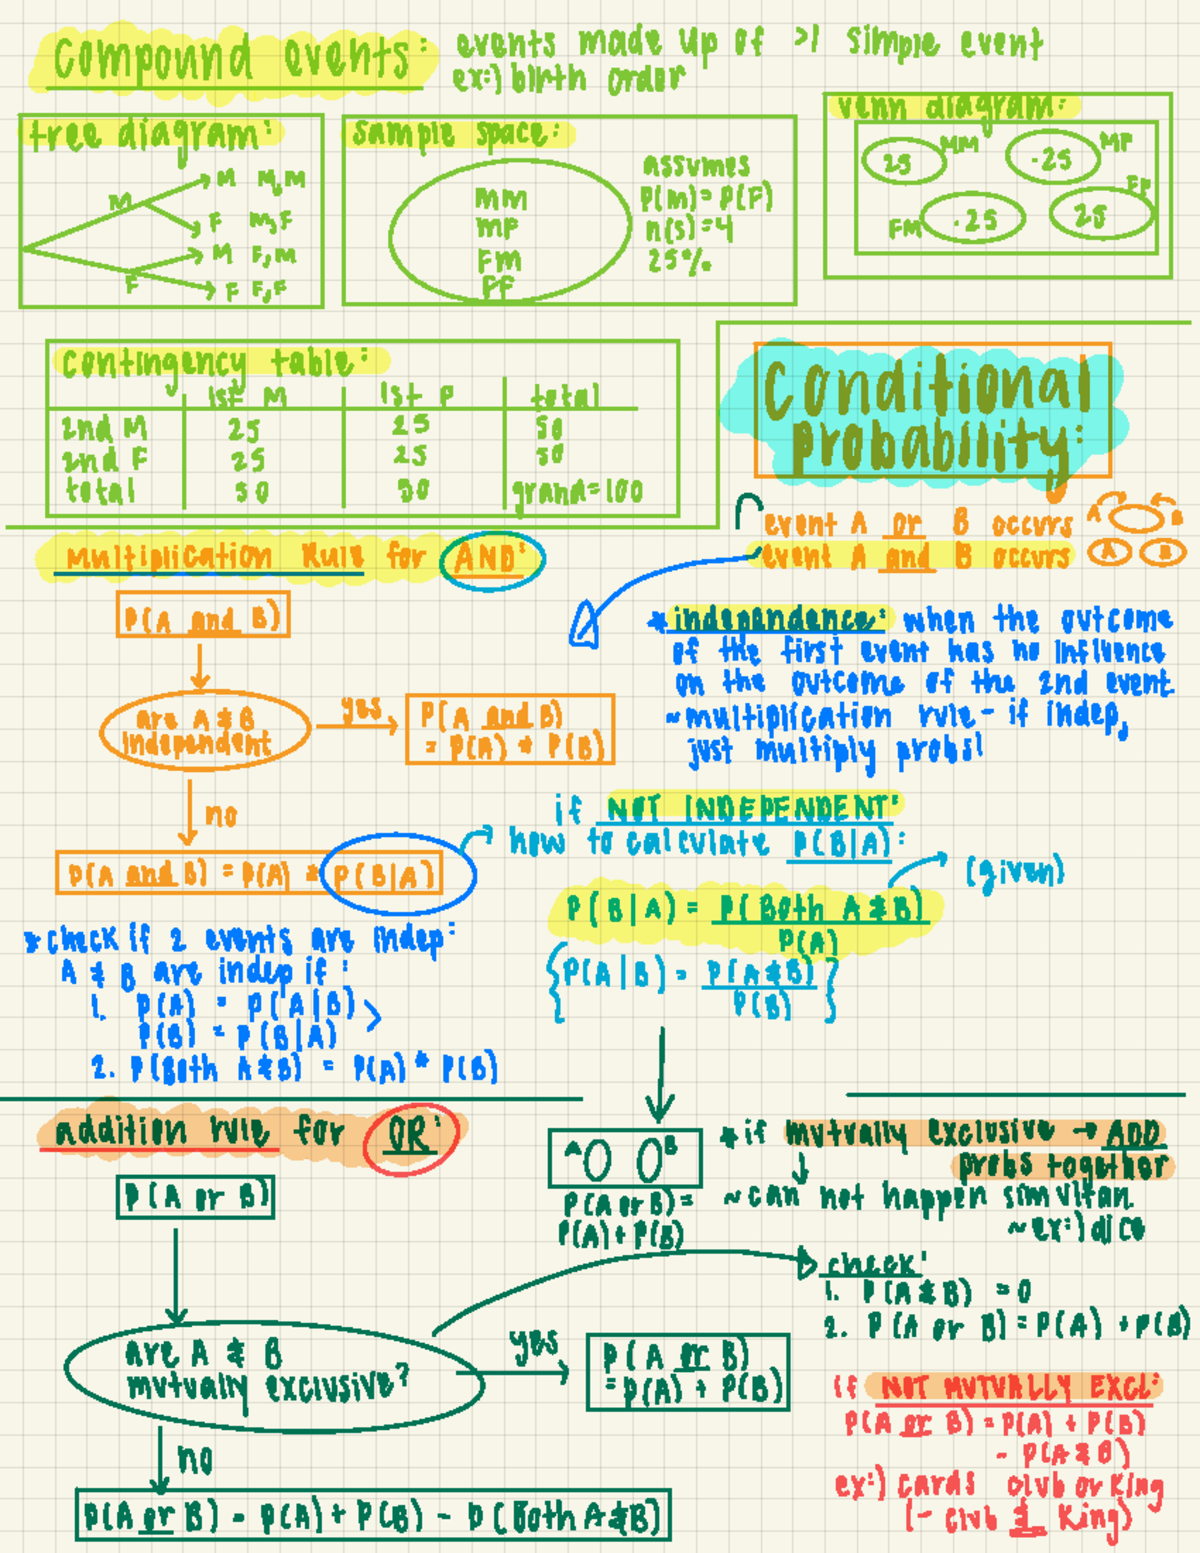 compound events: events made up of >1 simple event
ex:) birth order
tree diagram:
M
M M,M
F M,F
F
M F,M
F F,F
sample space:
MM
MF
FM
FF
assumes
P(M)= P(F)
n(s)=4
25%
venn diagram:
25 MM
.25 MF
FM .25
25 FF
contingency table:
1st M 1st F total
2nd M 25 25 50
2nd F 25 25 50
total 50 50 grand=100
Conditional
probability:
event A or B occurs A B
event A and B occurs A B
Multiplication Rule for AND:
P(A and B)
are A & B
independent
yes
P(A and B)
= P(A) * P(B)
no
P(A and B) = P(A) * P(B|A)
* independence: when the outcome
of the first event has no influence
on the outcome of the 2nd event
~multiplication rule- if indep,
just multiply probs!
if NOT INDEPENDENT:
how to calculate P(B|A):
(given)
P(B|A) = P(Both A&B)
P(A)
{P(A|B) = P(A&B)}
P(B)
*check if 2 events are indep:
A & B are indep if:
1. P(A) = P(A|B)
P(B) = P(B|A)
2. P(Both A&B) = P(A) * P(B)
addition rule for OR:
P(A or B)
are A & B
mutually exclusive?
yes
P(A or B)
= P(A) + P(B)
no
P(A or B) = P(A) + P(B) - P(Both A&B)
A B
P(A or B)=
P(A)+P(B)
*if mutually exclusive → ADD
probs together
~can not happen simultan.
~ex:) dice
check:
1. P(A&B) =0
2. P(A or B)=P(A) +P(B)
if NOT MUTUALLY EXCL:
P(A or B) = P(A) + P(B)
- P(A&B)
ex:) cards club or King
(- club & King)